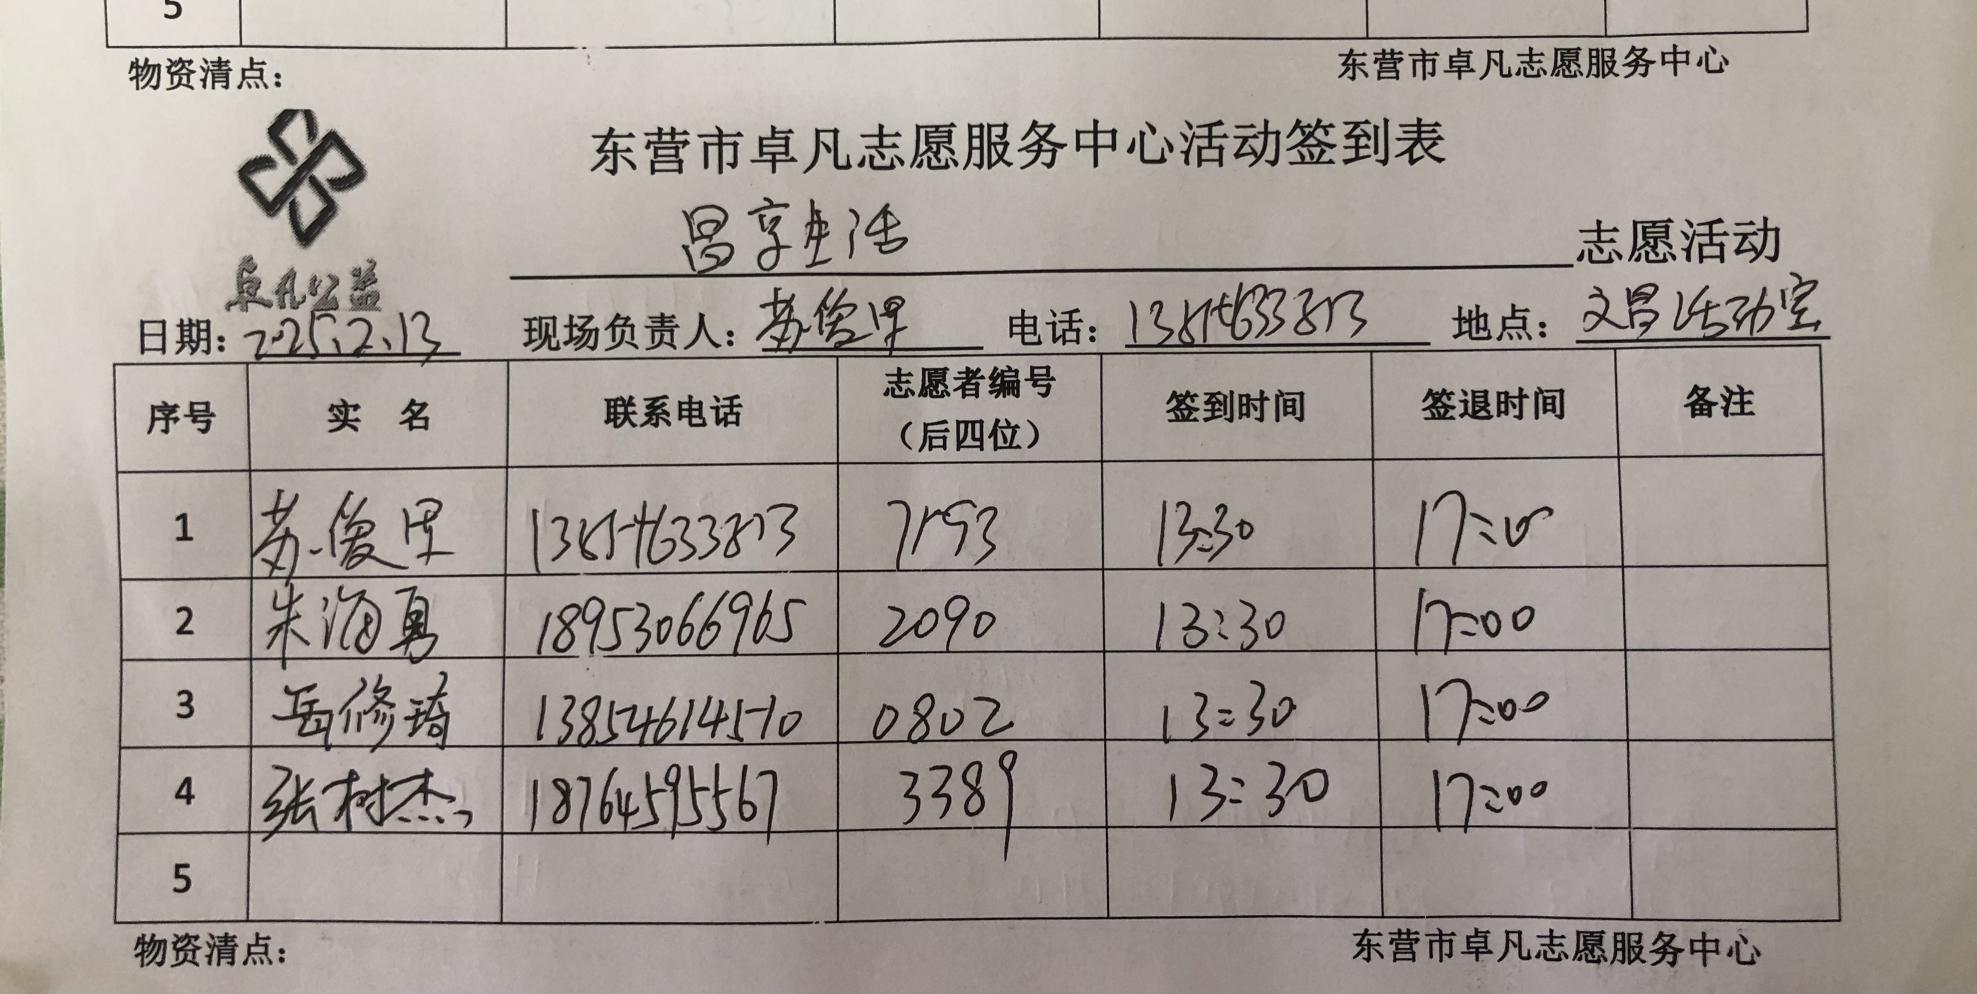 5
物资清点： 东营市卓凡志愿服务中心
东营市卓凡志愿服务中心活动签到表
昌享生活 志愿活动
卓凡公益
日期：2025.2.13 现场负责人：苏俊 电话： 地点：文昌活动室
序号 实 名 联系电话 志愿者编号（后四位） 签到时间 签退时间 备注
1 苏俊 13:30 17:00
2 朱海勇 18953066965 2090 13:30 17:00
3 岳修琦 13854614510 0802 13:30 17:00
4 张树杰 18764595567 3389 13:30 17:00
5
物资清点： 东营市卓凡志愿服务中心